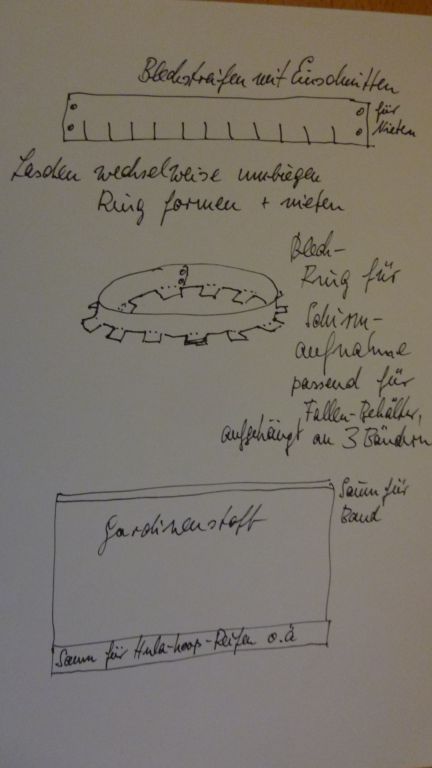 Blechstreifen mit Einschnitten
für
Nieten
Laschen wechselweise umbiegen
Ring formen + nieten
Blech-
Ring für
Schirm-
aufnahme
passend für
Fallen-Behälter,
aufgehängt an 3 Bändern
Saum für
Band
Gardinenstoff
Saum für Hula-hoop-Reifen o.ä